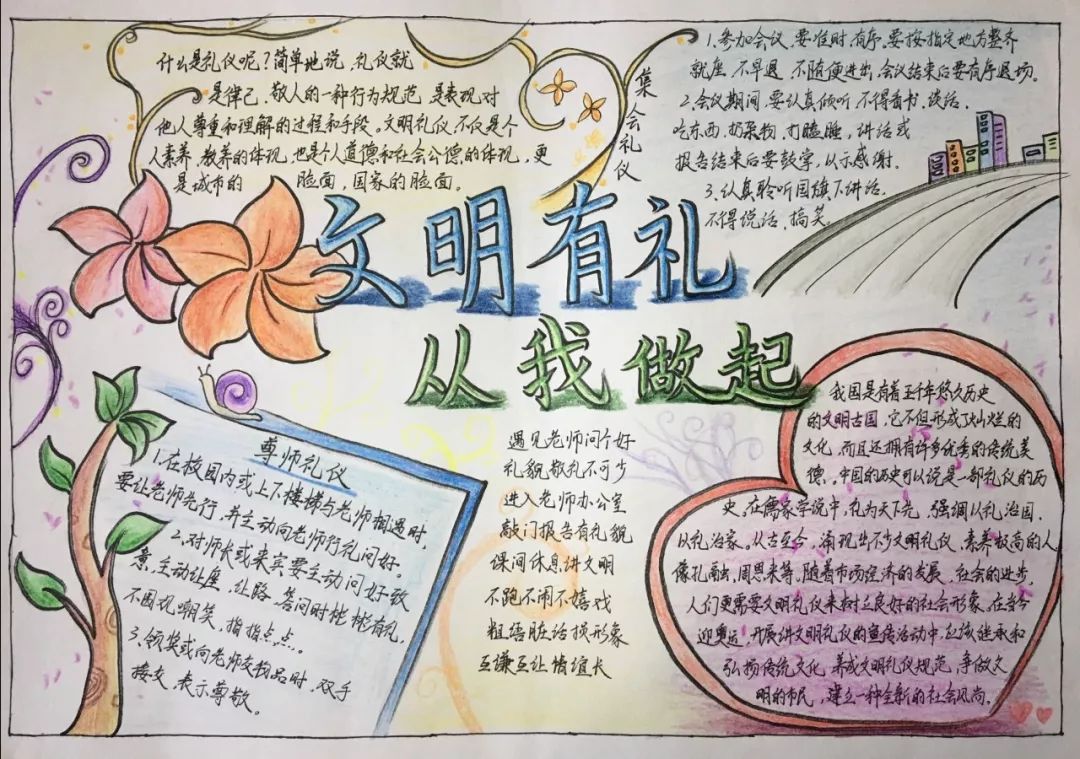 什么是礼仪呢？简单地说，礼仪就
是律己、敬人的一种行为规范，是表现对
他人尊重和理解的过程和手段。文明礼仪，不仅是个
人素养、教养的体现，也是个人道德和社会公德的体现，更
是城市的脸面，国家的脸面。
集会礼仪
1、参加会议，要准时，有序。要按指定地方整齐
就座，不早退，不随便进出，会议结束后要有序退场。
2、会议期间，要认真倾听，不得看书，谈话，
吃东西，扔杂物，打瞌睡，讲话或
报告结束后要鼓掌，以示感谢。
3、认真聆听国旗下讲话，
不得说话，搞笑。
文明有礼
从我做起
尊师礼仪
1、在校园内或上下楼梯与老师相遇时，
要让老师先行，并主动向老师行礼问好。
2、对师长或来宾要主动问好致
意，主动让座，让路，答问时彬彬有礼，
不围观嘲笑，指指点点……
3、领奖或向老师交物品时，双手
接交，表示尊敬。
遇见老师问个好
礼貌敬礼不可少
进入老师办公室
敲门报告有礼貌
课间休息讲文明
不跑不闹不嬉戏
粗语脏话损形象
互谦互让情谊长
我国是有着五千年悠久历史
的文明古国，它不但形成了灿烂的
文化，而且还拥有许多优秀的传统美
德，中国的历史可以说是一部礼仪的历
史，在儒家学说中，礼为天下先，强调以礼治国，
以礼治家。从古至今，涌现出不少文明礼仪，素养极高的人，
像孔融，周恩来等，随着市场经济的发展，社会的进步，
人们更需要文明礼仪来树立良好的社会形象，在当今
迎奥运，开展讲文明礼仪的宣传活动中，应该继承和
弘扬传统文化，养成文明礼仪规范，争做文
明的市民，建立一种全新的社会风尚。